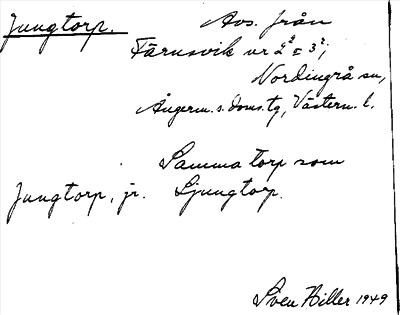 Jungtorp. Avs. från
Färnsvik nr 2² = 3²;
Nordingrå sn,
Ångerm. s. doms.tg, Västern. l.
Samma torp som
Jungtorp, jr. Ljungtorp.
Sven Hiller 1949